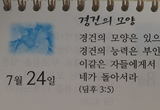 경건의 모양
경건의 모양은 있으
경건의 능력은 부인
이같은 자들에게서
네가 돌아서라
(딤후 3:5)
7월 24일